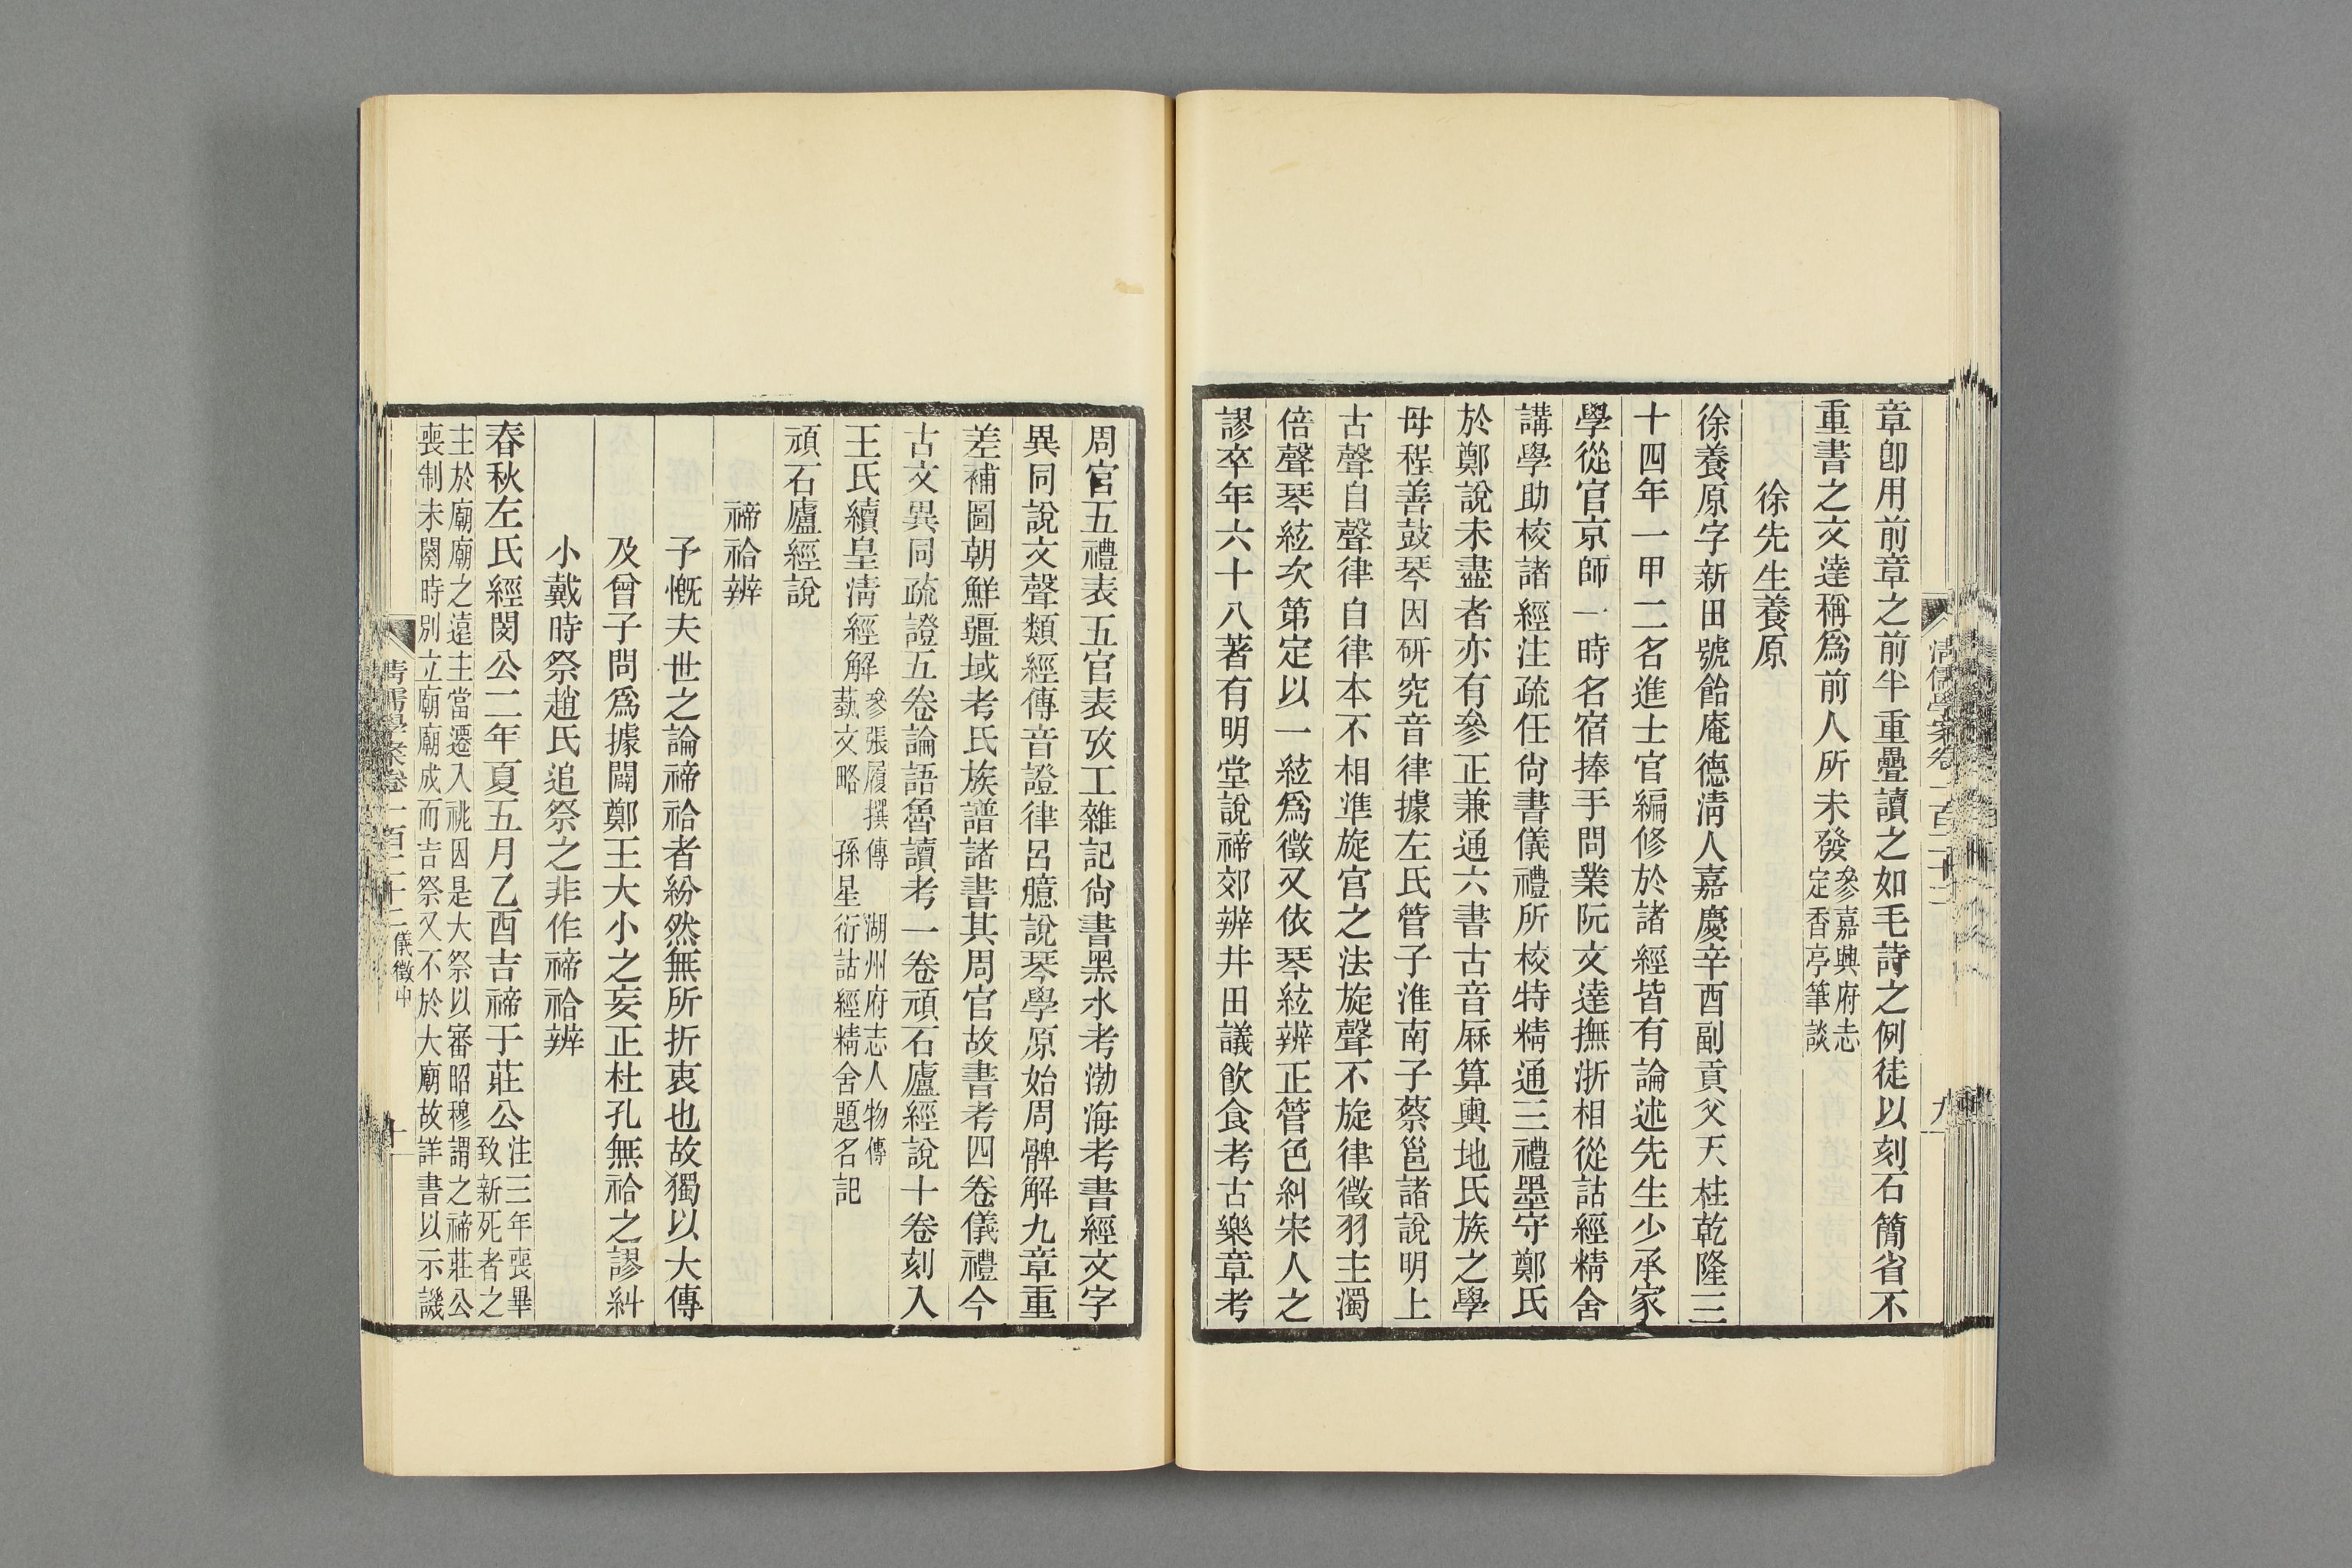 章卽用前章之前半重疊讀之如毛詩之例徒以刻石簡省不
重書之文達稱爲前人所未發參嘉興府志
定香亭筆談
徐先生養原
徐養原字新田號飴庵德淸人嘉慶辛酉副貢父天柱乾隆三
十四年一甲二名進士官編修於諸經皆有論述先生少承家
學從官京師一時名宿捧手問業阮文達撫浙相從詁經精舍
講學助校諸經注疏任尙書儀禮所校特精通三禮墨守鄭氏
於鄭說未盡者亦有參正兼通六書古音厤算輿地氏族之學
母程善鼓琴因研究音律據左氏管子淮南子蔡邕諸說明上
古聲自聲律自律本不相準旋宮之法旋聲不旋律徵羽主濁
倍聲琴絃次第定以一絃爲徵又依琴絃辨正管色糾宋人之
謬卒年六十八著有明堂說禘郊辨井田議飮食考古樂章考
淸儒學案卷一百二十二
九
周官五禮表五官表攷工雜記尙書黑水考渤海考書經文字
異同說文聲類經傳音證律呂臆說琴學原始周髀解九章重
差補圖朝鮮疆域考氏族譜諸書其周官故書考四卷儀禮今
古文異同疏證五卷論語魯讀考一卷頑石廬經說十卷刻入
王氏續皇淸經解參張履撰傳 湖州府志人物傳
藝文略 孫星衍詁經精舍題名記
頑石廬經說
禘祫辨
予慨夫世之論禘祫者紛然無所折衷也故獨以大傳
及曾子問爲據闢鄭王大小之妄正杜孔無祫之謬糾
小戴時祭趙氏追祭之非作禘祫辨
春秋左氏經閔公二年夏五月乙酉吉禘于莊公注三年喪畢
致新死者之
主於廟廟之遠主當遷入祧因是大祭以審昭穆謂之禘莊公
喪制未闋時別立廟廟成而吉祭又不於大廟故詳書以示譏
淸儒學案卷一百二十二 儀徵中
十